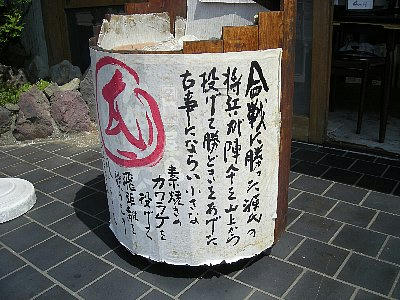 合戦に勝った源氏の
将兵が陣傘を山上から
投げて勝どきをあげた
古事にならい小さな
素焼きの
カワラケを
投げて
飛距離を